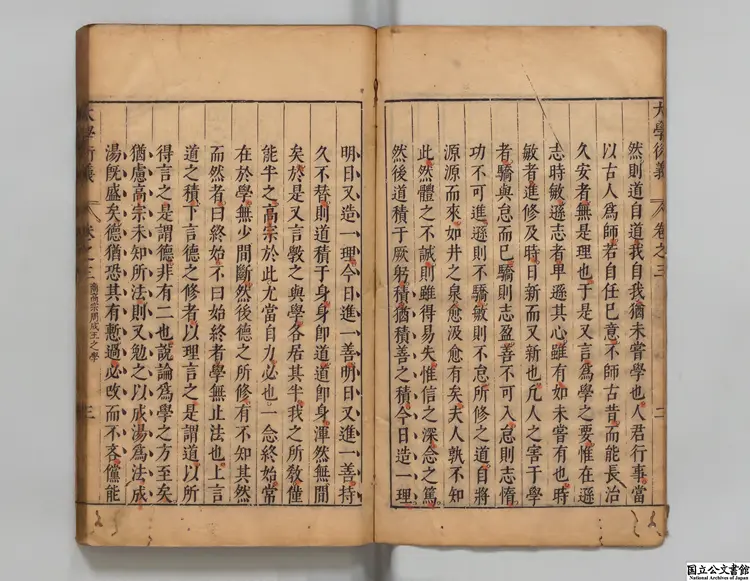 大學衍義 卷之三 二
然則道自道我自我猶未嘗學也人君行事當
以古人爲師若自任己意不師古昔而能長治
久安者無是理也于是又言爲學之要惟在遜
志時敏遜志者卑遜其心雖有如未嘗有也時
敏者進修及時日新而又新也凡人之害于學
者驕與怠而已驕則志盈善不可入怠則志惰
功不可進遜則不驕敏則不怠所修之道自將
源源而來如井之泉愈汲愈有矣夫人孰不知
此然體之不誠則雖得易失惟信之深念之篤
然後道積于厥躬積猶積善之積今日造一理
明日又造一理今日進一善明日又進一善持
久不替則道積于身身卽道道卽身渾然無間
矣於是又言敎之與學各居其半我之所敎僅
能半之高宗於此尤當自力必也一念終始常
在於學無少間斷然後德之所修有不知其然
而然者曰終始不曰始終者學無止法也上言
道之積下言德之修者以理言之是謂道以所
得言之是謂德非有二也說論爲學之方至矣
猶慮高宗未知所法則又勉之以成湯爲法成
湯旣盛矣德猶恐其有慙過必改而不吝儻能
大學衍義 卷之三 商高宗周成王之學 三
国立公文書館
National Archives of Japan